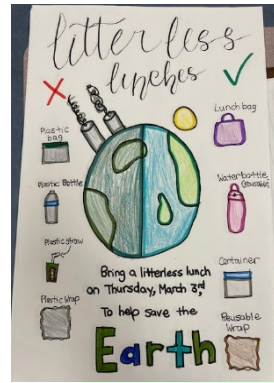 litterless
lunches
Plastic bag
Plastic Bottle
Plastic straw
Plastic Wrap
Lunch bag
Waterbottle
(reusable)
Container
Reusable
Wrap
Bring a litterless lunch
on Thursday, March 3rd
To help save the
Earth